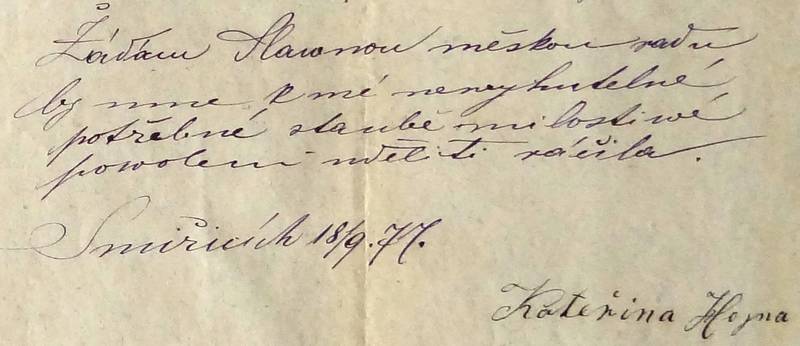 Žádám Slawnou měskou radu
by mne k mé newyhutelné
potřebné staubě milostiwé
powolení uděliti ráčila.
Smiřicích 18/9.77.
Kateřina Hojna